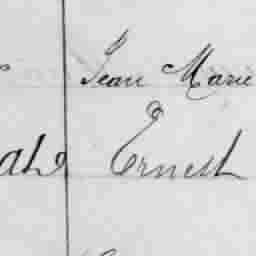 Jean Marie
Ernest